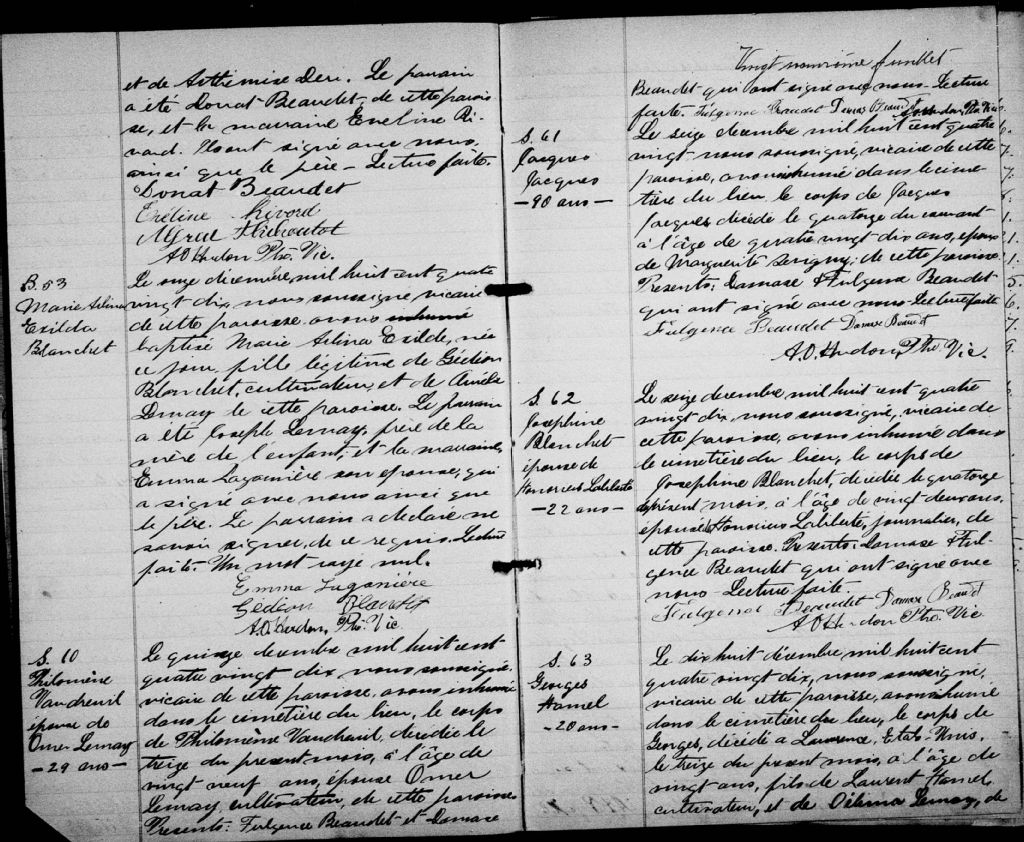 et de Arthémise Deri. Le parrain
a été Donat Beaudet, de cette parois-
se, et la marraine Eveline Ri-
vard. Ils ont signé avec nous,
ainsi que le père – Lecture faite.
Donat Beaudet
Eveline Rivard
A.O. Hudon Ptre. Vic.
B. 53
Marie Arlina
Exilda
Blanchet
Le onze décembre, mil huit cent quatre
vingt dix, nous soussigné vicaire
de cette paroisse avons inhumé
baptisé Marie Arlina Exilda, née
ce jour, fille légitime de Gédéon
Blanchet, cultivateur, et de Aurélie
Lemay de cette paroisse. Le parrain
a été Joseph Lemay, frère de la
mère de l'enfant, et la marraine,
Emma Laganière son épouse, qui
a signé avec nous ainsi que
le père. Le parrain a déclaré ne
savoir signer, de ce requis. Lecture
faite. Un mot rayé nul.
Emma Laganière
Gédéon Blanchet
A.O. Hudon, Ptre. Vic.
S. 60
Philomène
Vaudreuil
épouse de
Omer Lemay
– 29 ans –
Le quinze décembre mil huit cent
quatre vingt dix nous soussigné,
vicaire de cette paroisse, avons inhumé
dans le cimetière du lieu, le corps
de Philomène Vaudreuil, décédée le
treize du présent mois, à l'âge de
vingt neuf ans, épouse Omer
Lemay cultivateur, de cette paroisse
Présents: Fulgence Beaudet et Damase
Vingt neuvième feuillet
Beaudet qui ont signé avec nous – Lecture
faite. Fulgence Beaudet Damase Beaudet A.O. Hudon, Ptre Vic.
S. 61
Jacques
Jacques
– 90 ans –
Le seize décembre mil huit cent quatre
vingt nous soussigné, vicaire de cette
paroisse, avons inhumé dans le cime-
tière du lieu le corps de Jacques
Jacques décédé le quatorze du courant
à l'âge de quatre vingt dix ans, époux
de Marguerite Sevigny, de cette paroisse.
Présents: Damase & Fulgence Beaudet
qui ont signé avec nous Lecture faite
Fulgence Beaudet Damase Beaudet
A.O. Hudon, Ptre. Vic.
S. 62
Josephine
Blanchet
épouse de
Honorius Laliberté
– 22 ans –
Le seize décembre mil huit cent quatre
vingt dix, nous soussigné, vicaire de
cette paroisse, avons inhumé dans
le cimetière du lieu, le corps de
Josephine Blanchet, décédée le quatorze
présent mois, à l'âge de vingt deux ans,
épouse Honorius Laliberté, journalier, de
cette paroisse. Présents: Damase & Ful-
gence Beaudet qui ont signé avec
nous – Lecture faite.
Fulgence Beaudet Damase Beaudet
A.O. Hudon Ptre. Vic
S. 63
Georges
Hamel
– 20 ans –
Le dix huit décembre mil huit cent
quatre vingt dix, nous soussigné,
vicaire de cette paroisse, avons inhumé
dans le cimetière du lieu, le corps de
Georges, décédé a Lawrence, Etats-Unis.
le treize du présent mois, à l'âge de
vingt ans, fils de Laurent Hamel
cultivateur, et de Odiana Lemay, de